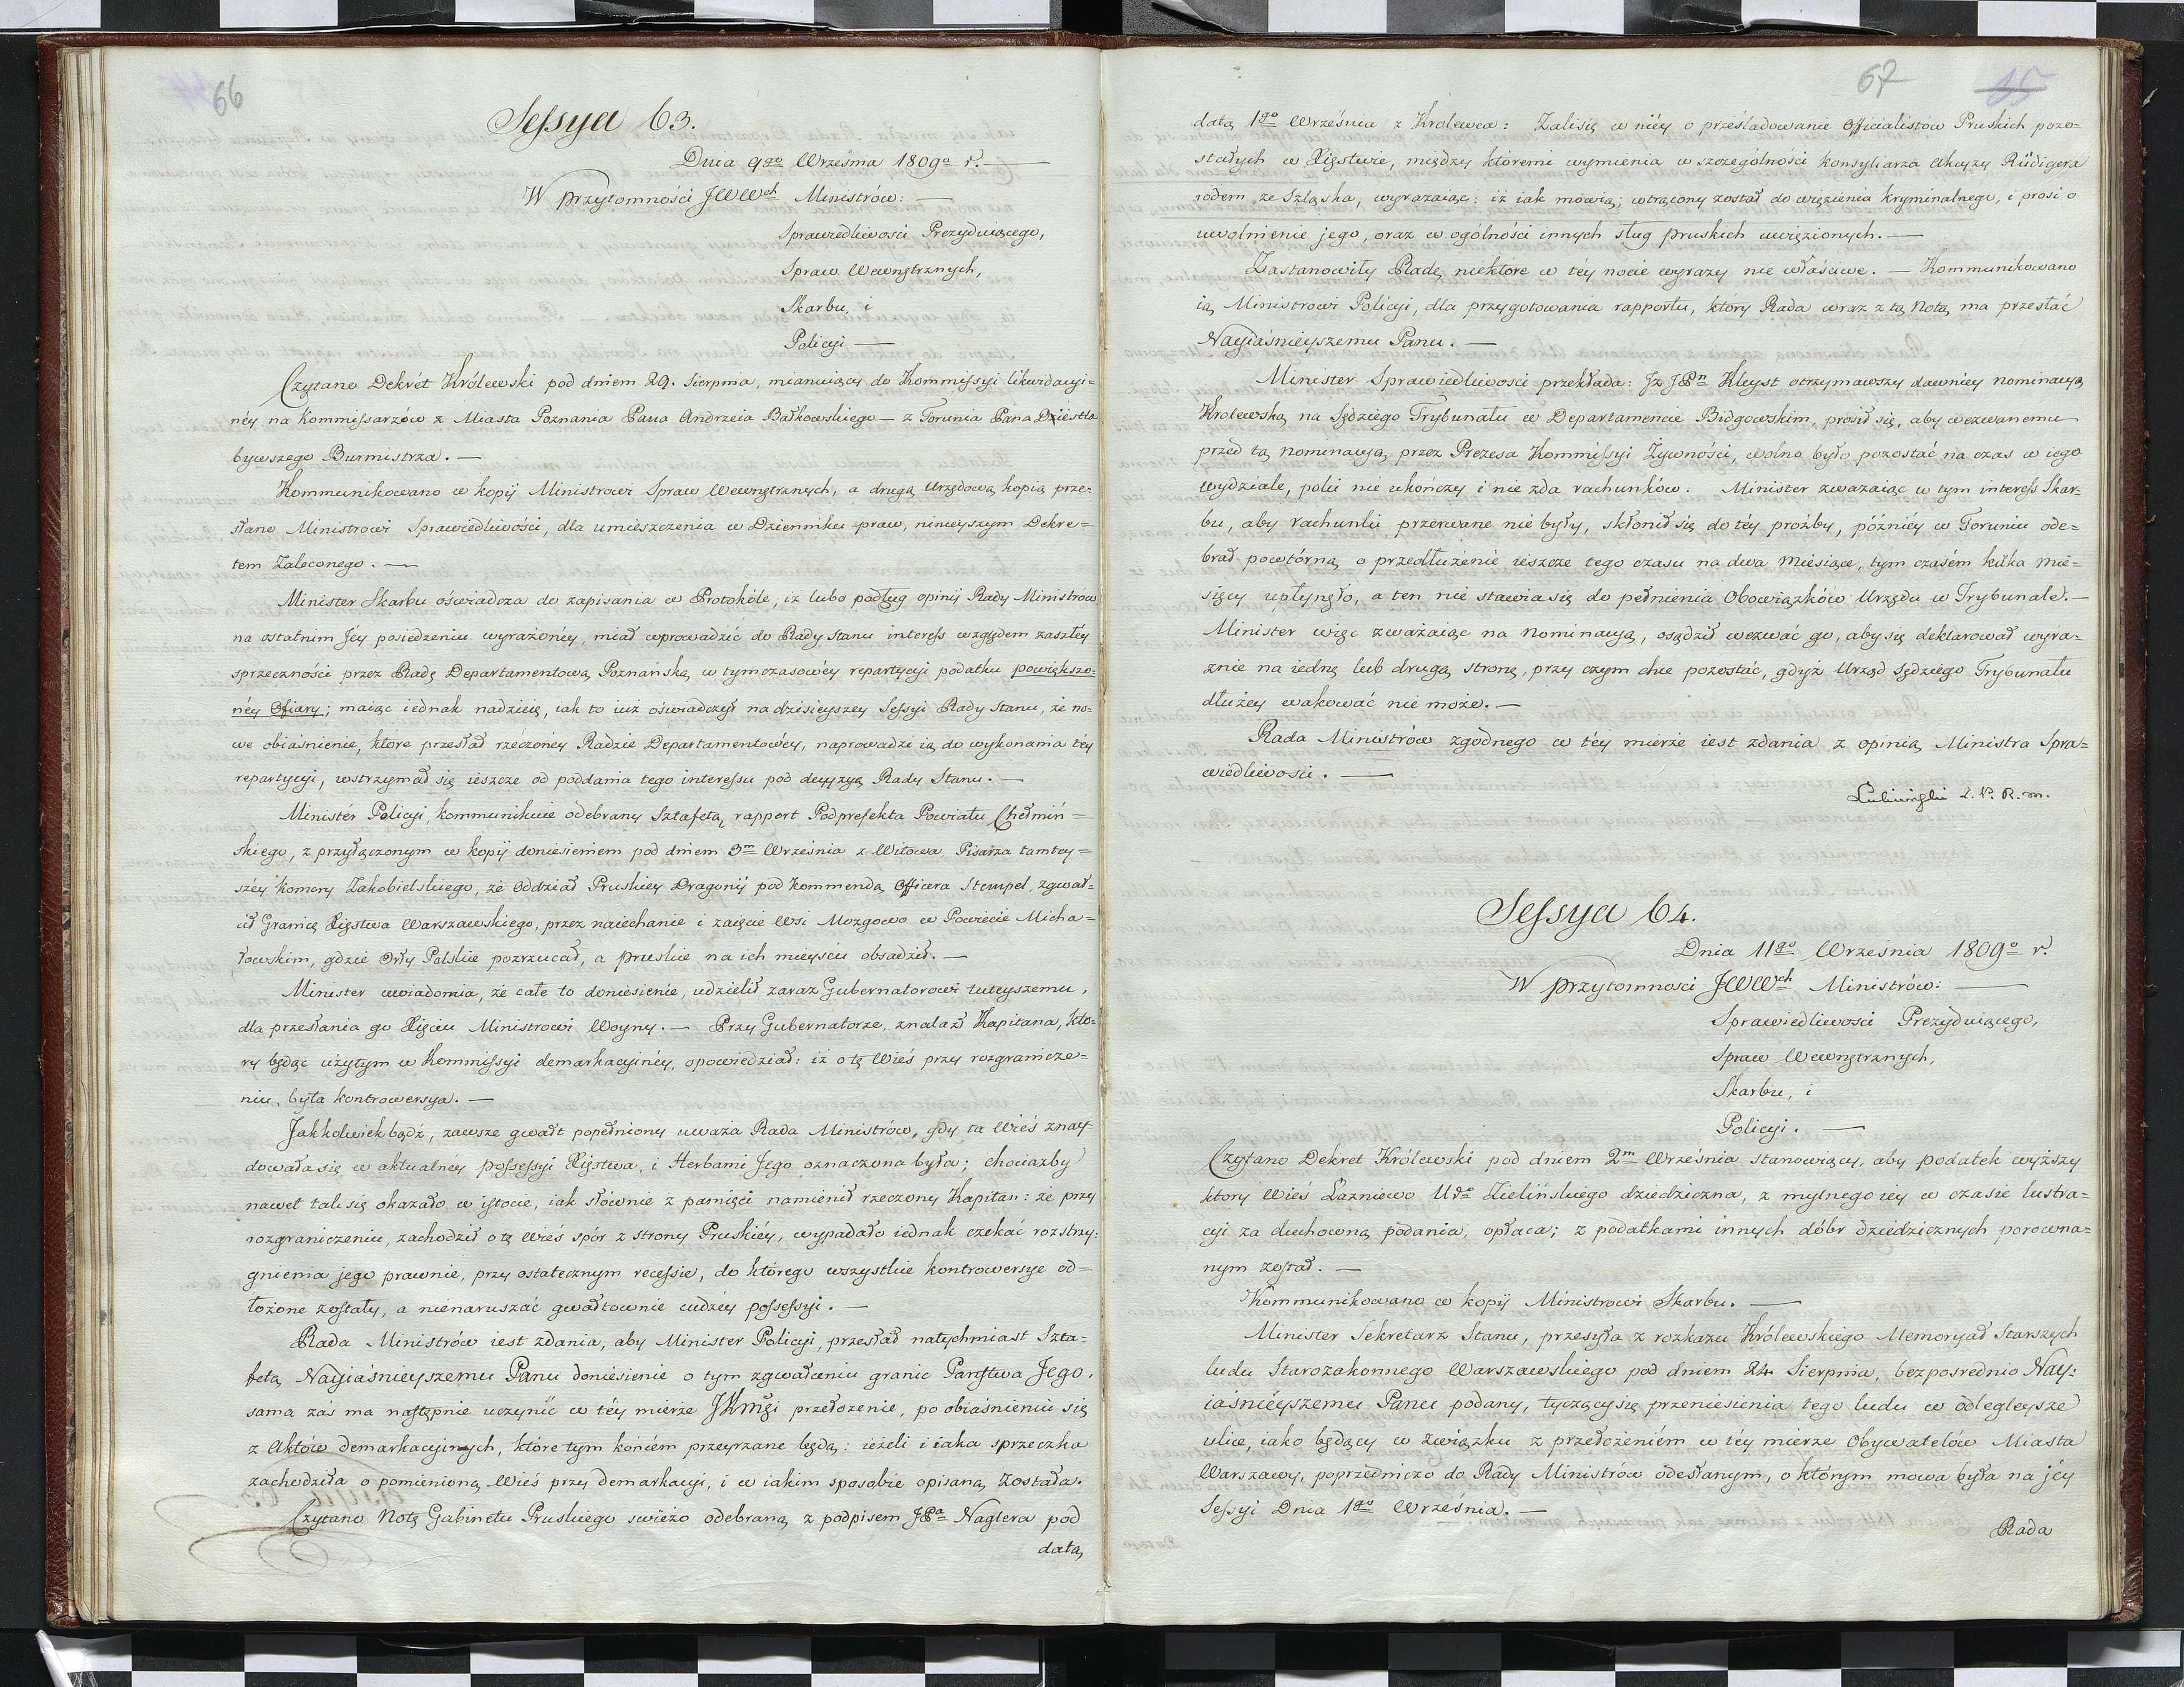 66
Sessya 63.
Dnia 9go Września 1809o r. —
W przytomności JWWch Ministrów: —
Sprawiedliwości Prezyduiącego,
Spraw Wewnętrznych,
Skarbu, i
Policyi —
Czytano Dekrét Królewski pod dniem 29. Sierpnia, mianuiący do Kommissyi likwidacyi=
néy na Kommissarzów z Miasta Poznania Pana Andrzeia Bałkowskiego — z Torunia Pana
bywszego Burmistrza. —
Kommunikowano w kopij Ministrowi Spraw Wewnętrznych, a drugą urzędową kopią prze=
słano Ministrowi Sprawiedliwości, dla umieszczenia w Dzienniku praw, ninieyszym Dekre=
tem Zaleconego. —
Minister Skarbu oświadcza do zapisania w Protokóle, iż lubo podług opinij Rady Ministrów
na ostatnim Jéy posiedzeniu wyrażonéy, miał wprowadzić do Rady Stanu interess względem zaszłéy
sprzeczności przez Radę Departamentową Poznańską w tymczasowéy repartycyi podatku powiększo=
néy Ofiary; maiąc iednak nadzieię, iak to iuż oświadczył na dzisieyszey Sessyi Rady Stanu, że no=
we obiaśnienie, które przesłał rzeczonéy Radzie Departamentowéy, naprowadzi ią do wykonania téy
repartycyi, wstrzymał się ieszcze od poddania tego interessu pod decyzyą Rady Stanu. —
Ministér Policyi, kommunikuie odebrany Sztafetą, rapport Podprefekta Powiatu Chełmiń=
skiego, z przyłączonym w kopij doniesieniem pod dniem 3m Września z Witowa, Pisarza tamtey=
széy Komory Zakobielskiego, że Oddział Pruskiey Dragonij pod kommendą Officera Stempel, zgwał=
cił Granicę Xięstwa Warszawskiego, przez naiechanie i zaięcie Wsi Mozgowo w Powiecie Micha=
łowskim, gdzie Orły Polskie pozrzucał, a pruskie na ich mieyscu obsadził. —
Minister uwiadomia, że całe to doniesienie, udzielił zaraz Gubernatorowi tuteyszemu,
dla przesłania go Xięciu Ministrowi Woyny. — Przy Gubernatorze, znalazł Kapitana, któ=
ry będąc użytym w Kommissyi demarkacyinéy, opowiedział: iż o tę Wieś przy rozgranicze=
niu, była kontrowersya. —
Jakkolwiek bądź, zawsze gwałt popełniony uważa Rada Ministrów, gdy ta Wieś znay=
dowała się w aktualney possessyi Xięstwa, i Herbami Jego oznaczona była; chociażby
nawet tak się okazało w istocie, iak słównie z pamięci namienił rzeczony Kapitan: że przy
rozgraniczeniu, zachodził o tę Wieś spór z strony Pruskiéy, wypadało iednak czekać rozstrzy=
gnienia jego prawnie, przy ostatecznym recessie, do którego wszystkie kontrowersye od=
łożone zostały, a nienaruszać gwałtownie cudzéy possessyi. —
Rada Ministrów iest zdania, aby Minister Policyi, przesłał natychmiast Szta=
fetą Nayiaśnieyszemu Panu doniesienie o tym zgwałceniu granic Państwa Jego,
sama zaś ma następnie uczynić w téy mierze JKmści przełożenie, po obiaśnieniu się
z Aktów demarkacyinych, które tym końcem przeyrzane będą: ieżeli i iaka sprzeczka
zachodziła o pomienioną Wieś przy demarkacyi, i w iakim sposobie opisaną została.
Czytano Notę Gabinetu Pruskiego swieżo odebraną z podpisem JPa Naglera pod
datą
67
15
datą 1go Września z Królewca: Żali się w niéy o prześladowanie Officialistów Pruskich pozo=
stałych w Xięstwie, między któremi wymienia w szczególności konsyliarza Akcyzy Rüdigera
rodem ze Szląska, wyrażaiąc: iż iak mówią; wtrącony został do więzienia kryminalnego, i prosi o
uwolnienie jego, oraz w ogólności innych sług pruskich uwięzionych. —
Zastanowiły Radę niektóre w téy nocie wyrazy nie właściwe. — Kommunikowano
ią Ministrowi Policyi, dla przygotowania rapportu, który Rada wraz z tą Notą ma przesłać
Nayiaśnieyszemu Panu. —
Minister Sprawiedliwości przekłada: Iż JPn Kleyst otrzymawszy dawniey nominacyą
Krolewską na Sędziego Trybunału w Departamencie Bidgowskim, prosił się, aby wezwanemu
przed tą nominacyą przez Prezesa Kommissyi Żywności, wolno było pozostać na czas w iego
wydziale, poki nie ukończy i nie zda rachunków. Minister zważaiąc w tym interess Skar=
bu, aby rachunki przerwane nie były, skłonił się do téy proźby, późniéy w Toruniu ode=
brał powtórną o przedłużenie ieszcze tego czasu na dwa Miesiące, tym czasém kilka mie=
sięcy upłynęło, a ten nie stawia się do pełnienia Obowiązków Urzędu w Trybunale. —
Minister więc zważaiąc na nominacyą, osądził wezwać go, aby się deklarował wyra=
znie na iednę lub drugą stronę, przy czym chce pozostać, gdyż Urząd Sędziego Trybunału
dłużey wakować nie może. —
Rada Ministrów zgodnego w téy mierze iest zdania z opinią Ministra Spra=
wiedliwości. —
Lubieński Z. P. R. m.
Sessya 64.
Dnia 11go Września 1809o r.
W przytomności JWWch Ministrów: —
Sprawiedliwości Prezyduiącego,
Spraw Wewnętrznych,
Skarbu, i
Policyi. —
Czytano Dekret Królewski pod dniem 2m Września stanowiący, aby podatek wyższy
ktory Wieś Łazniewo Uro Zielińskiego dziedziczna, z mylnego iéy w czasie lustra=
cyi za duchowną podania, opłaca; z podatkami innych dóbr dziedzicznych porowna=
nym został. —
Kommunikowano w kopij Ministrowi Skarbu. —
Minister Sekretarz Stanu, przesyła z rozkazu Królewskiego Memoryał Starszych
ludu Starozakonnego Warszawskiego pod dniem 24 Sierpnia, bezpośrednio Nay=
iaśnieyszemu Panu podany, tyczący się przeniesienia tego ludu w odległeysze
ulice, iako będący w związku z przełożeniém w téy mierze Obywatelów Miasta
Warszawy, poprzedniczo do Rady Ministrów odesłanym, o którym mowa była na jéy
Sessyi Dnia 1go Września. —
Rada